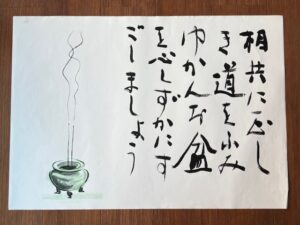 相共に正し
き道を歩み
ゆかんお盆
を心しずかにす
ごしましょう